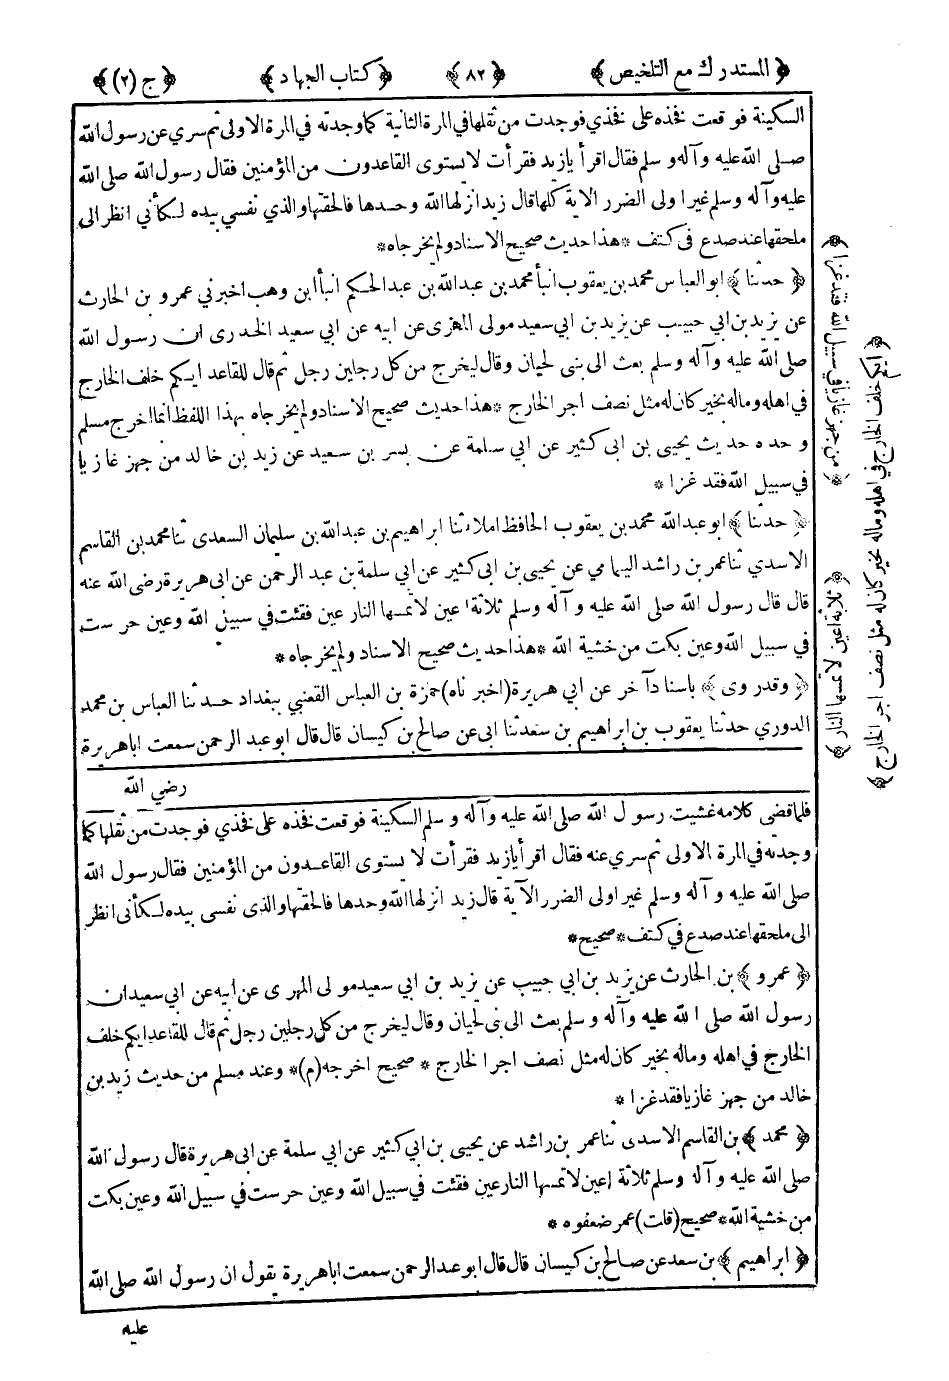 ﴿ المستدرك مع التلخيص ﴾ ﴿ ٨٢ ﴾ ﴿ كتاب الجهاد ﴾ ﴿ ج (٢) ﴾
السكينة فوقعت فخذه على فخذي فوجدت من ثقلها في المرة الثانية كما وجدته في المرة الاولى ثم سري عن رسول الله
صلى الله عليه وآله وسلم فقال اقرأ يازيد فقرأت لا يستوى القاعدون من المؤمنين فقال رسول الله صلى الله
عليه وآله وسلم غيراولى الضرر الاية كلها قال زيد انزلها الله وحدها فالحقتها والذي نفسي بيده لكأني انظر الى
ملحقها عند صدع فى كتف * هذا حديث صحيح الاسناد ولم يخرجاه *
﴿ حدثنا ﴾ ابو العباس محمد بن يعقوب انبأ محمد بن عبدالله بن عبدالحكم انبأ ابن وهب اخبرني عمرو بن الحارث
عن يزيد بن ابي حبيب عن يزيد بن ابي سعيد مولى المهرى عن ابيه عن ابي سعيد الخدرى ان رسول الله
صلى الله عليه وآله وسلم بعث الى بنى لحيان وقال ليخرج من كل رجلين رجل ثم قال للقاعد ايكم خلف الخارج
في اهله وماله بخير كان له مثل نصف اجر الخارج * هذا حديث صحيح الاسناد ولم يخرجاه بهذا اللفظ انما اخرج مسلم
وحده حديث يحيى بن ابى كثير عن ابي سلمة عن بسر بن سعيد عن زيد بن خالد من جهز غازيا
في سبيل الله فقد غزا *
﴿ حدثنا ﴾ ابو عبدالله محمد بن يعقوب الحافظ املاء ثنا ابراهيم بن عبدالله بن سليمان السعدى ثنا محمد بن القاسم
الاسدي ثنا عمر بن راشد اليمامي عن يحيى بن ابى كثير عن ابي سلمة بن عبد الرحمن عن ابى هريرة رضى الله عنه
قال قال رسول الله صلى الله عليه و آله وسلم ثلاثة اعين لا تمسها النار عين فقئت في سبيل الله وعين حرست
في سبيل الله وعين بكت من خشية الله * هذا حديث صحيح الاسناد ولم يخرجاه *
﴿ وقد روى ﴾ باسناد آخر عن ابي هريرة (اخبرناه) حمزة بن العباس القعنبي ببغداد حدثنا العباس بن محمد
الدوري حدثنا يعقوب بن ابراهيم بن سعد ثنا ابى عن صالح بن كيسان قال قال ابو عبد الرحمن سمعت اباهريرة
رضي الله
فلما قضى كلامه غشيت رسول الله صلى الله عليه وآله وسلم السكينة فوقعت فخذه على فخذي فوجدت من ثقلها كما
وجدته في المرة الاولى ثم سري عنه فقال اقرأ يازيد فقرأت لا يستوى القاعدون من المؤمنين فقال رسول الله
صلى الله عليه و آله وسلم غير اولى الضرر الآية قال زيد انزلها الله وحدها فالحقتها والذى نفسى بيده لكأنى انظر
الى ملحقها عند صدع في كتف * صحيح *
﴿ عمرو ﴾ بن الحارث عن يزيد بن ابي حبيب عن يزيد بن ابي سعيد مولى المهرى عن ابيه عن ابي سعيد ان
رسول الله صلى الله عليه وآله وسلم بعث الى بنى لحيان وقال ليخرج من كل رجلين رجل ثم قال للقاعد ايكم خلف
الخارج في اهله وماله بخير كان له مثل نصف اجر الخارج * صحيح اخرجه (م) * وعند مسلم من حديث زيد بن
خالد من جهز غازيا فقد غزا *
﴿ محمد ﴾ بن القاسم الاسدى ثنا عمر بن راشد عن يحيى بن ابي كثير عن ابي سلمة عن ابى هريرة قال رسول الله
صلى الله عليه و آله وسلم ثلاثة اعين لا تمسها النار عين فقئت في سبيل الله وعين حرست في سبيل الله وعين بكت
من خشية الله * صحيح (قلت) عمر ضعفوه *
﴿ ابراهيم ﴾ بن سعد عن صالح بن كيسان قال قال ابو عبد الرحمن سمعت اباهريرة يقول ان رسول الله صلى الله
عليه
﴿ من جهز غازيا في سبيل الله فقد غزا ﴾
﴿ ثلاثة اعين لا تمسها النار ﴾
﴿ ايكم خلف الخارج في اهله وماله بخير كان له مثل نصف اجر الخارج ﴾